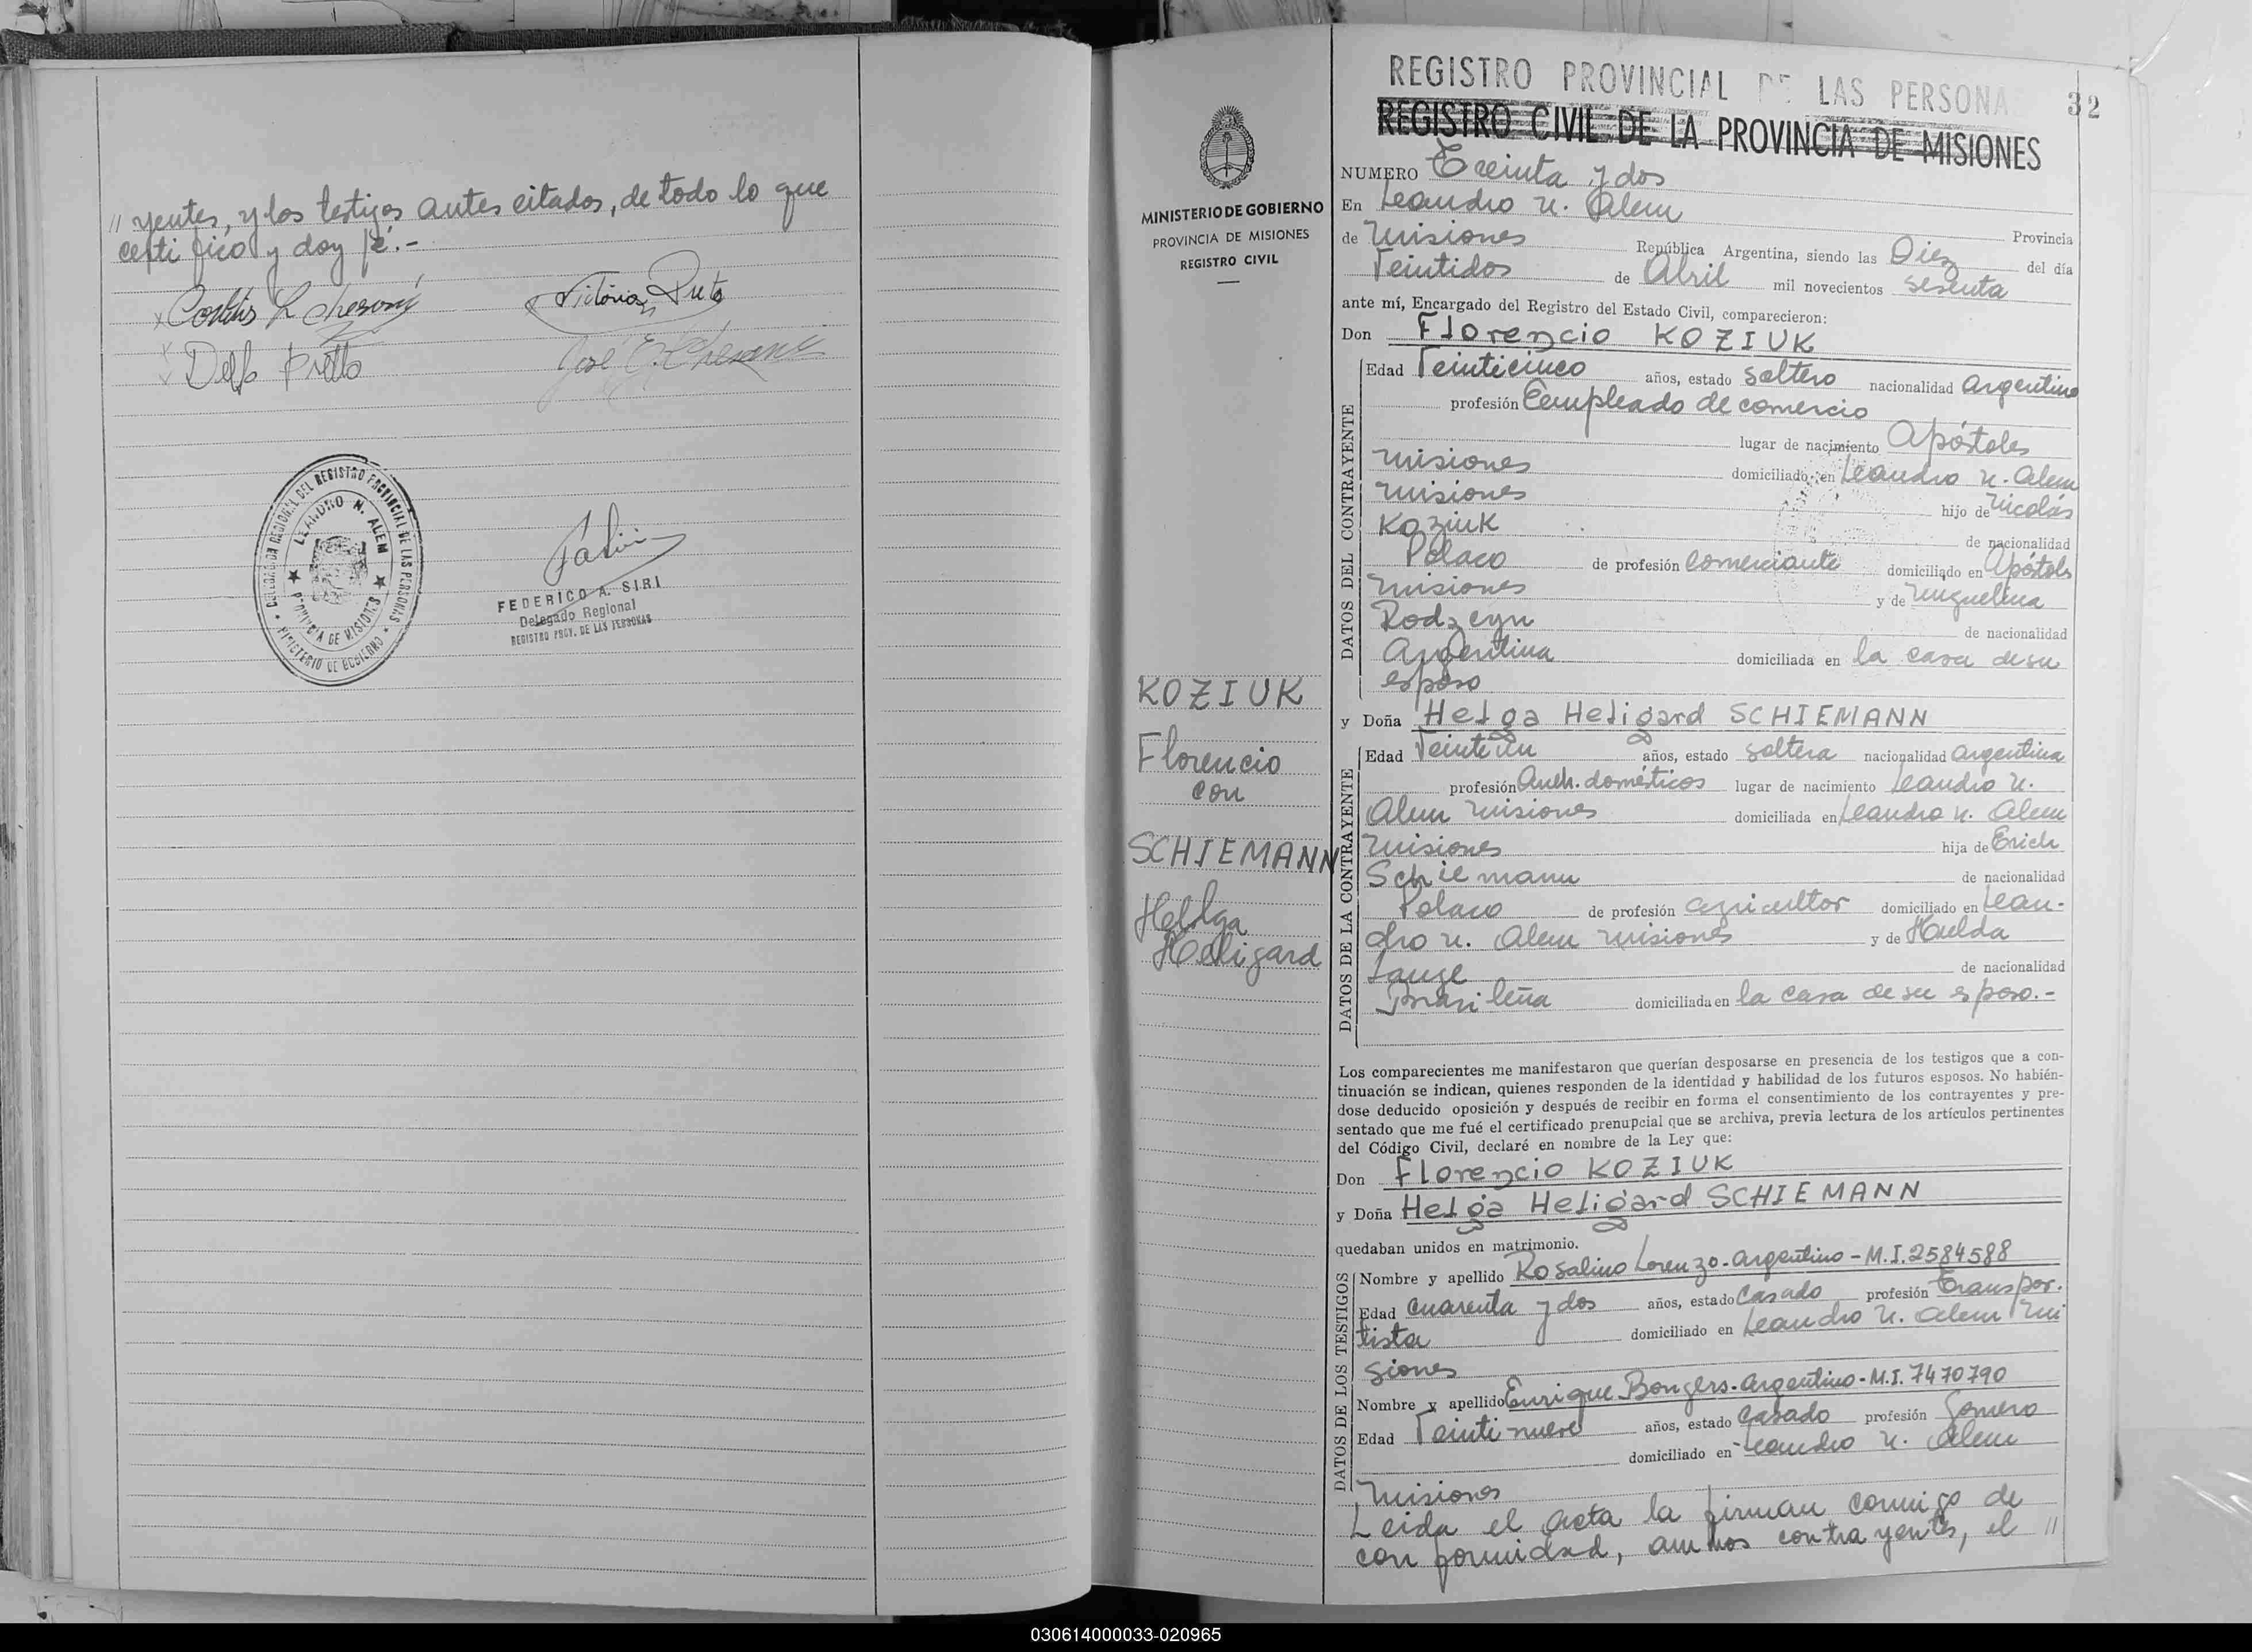 // yentes, y los testigos antes citados, de todo lo que
certifico y doy fé.-
Victoria
José E.
DELEGACION REGIONAL DEL REGISTRO PROVINCIAL DE LAS PERSONAS
LEANDRO N. ALEM
PROVINCIA DE MISIONES
MINISTERIO DE GOBIERNO
FEDERICO A. SIRI
Delegado Regional
REGISTRO PROV. DE LAS PERSONAS
MINISTERIO DE GOBIERNO
PROVINCIA DE MISIONES
REGISTRO CIVIL
KOZIUK
Florencio
con
SCHIEMANN
Helga
Heligard
REGISTRO PROVINCIAL DE LAS PERSONA
32
REGISTRO CIVIL DE LA PROVINCIA DE MISIONES
NUMERO Treinta y dos
En Leandro N. Alem
de Misiones Provincia
República Argentina, siendo las Diez del día
Veintidos de Abril mil novecientos sesenta
ante mí, Encargado del Registro del Estado Civil, comparecieron:
Don Florencio KOZIUK
DATOS DEL CONTRAYENTE
Edad Veinticinco años, estado soltero nacionalidad argentino
profesión Empleado de comercio
lugar de nacimiento Apóstoles
Misiones domiciliado en Leandro N. Alem
Misiones hijo de Nicolás
Koziuk de nacionalidad
Polaco de profesión Comerciante domiciliado en Apóstoles
Misiones y de
Rodzeyn de nacionalidad
Argentina domiciliada en la casa de su
esposo
y Doña Helga Heligard SCHIEMANN
DATOS DE LA CONTRAYENTE
Edad Veintiún años, estado soltera nacionalidad argentina
profesión Queh. domésticos lugar de nacimiento Leandro N.
Alem Misiones domiciliada en Leandro N. Alem
Misiones hija de Erich
Schiemann de nacionalidad
Polaco de profesión agricultor domiciliado en Lean-
dro N. Alem Misiones y de Hulda
Lange de nacionalidad
Brasileña domiciliada en la casa de su esposo.-
Los comparecientes me manifestaron que querían desposarse en presencia de los testigos que a con-
tinuación se indican, quienes responden de la identidad y habilidad de los futuros esposos. No habién-
dose deducido oposición y después de recibir en forma el consentimiento de los contrayentes y pre-
sentado que me fué el certificado prenupcial que se archiva, previa lectura de los artículos pertinentes
del Código Civil, declaré en nombre de la Ley que:
Don Florencio KOZIUK
y Doña Helga Heligard SCHIEMANN
quedaban unidos en matrimonio.
DATOS DE LOS TESTIGOS
Nombre y apellido Rosalino Lorenzo-Argentino-M.I.2584588
Edad cuarenta y dos años, estado Casado profesión Transpor-
tista domiciliado en Leandro N. Alem Mi
siones
Nombre y apellido Enrique Bongers-Argentino-M.I.7470790
Edad Veintinueve años, estado Casado profesión Gomero
domiciliado en Leandro N. Alem
Misiones
Leida el acta la firman conmigo de
conformidad, ambos contrayentes, el //
030614000033-020965